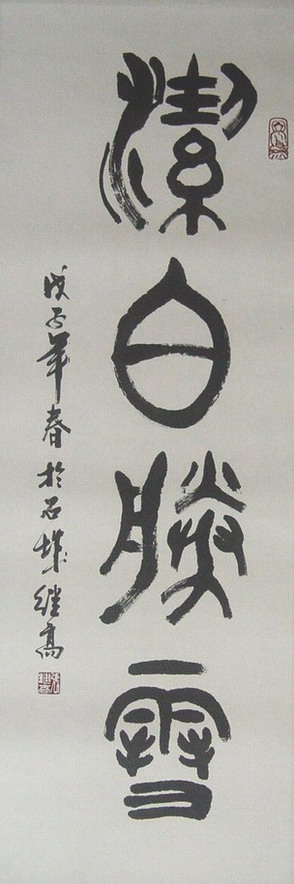 潔白勝雪
戊子年春於石城继高